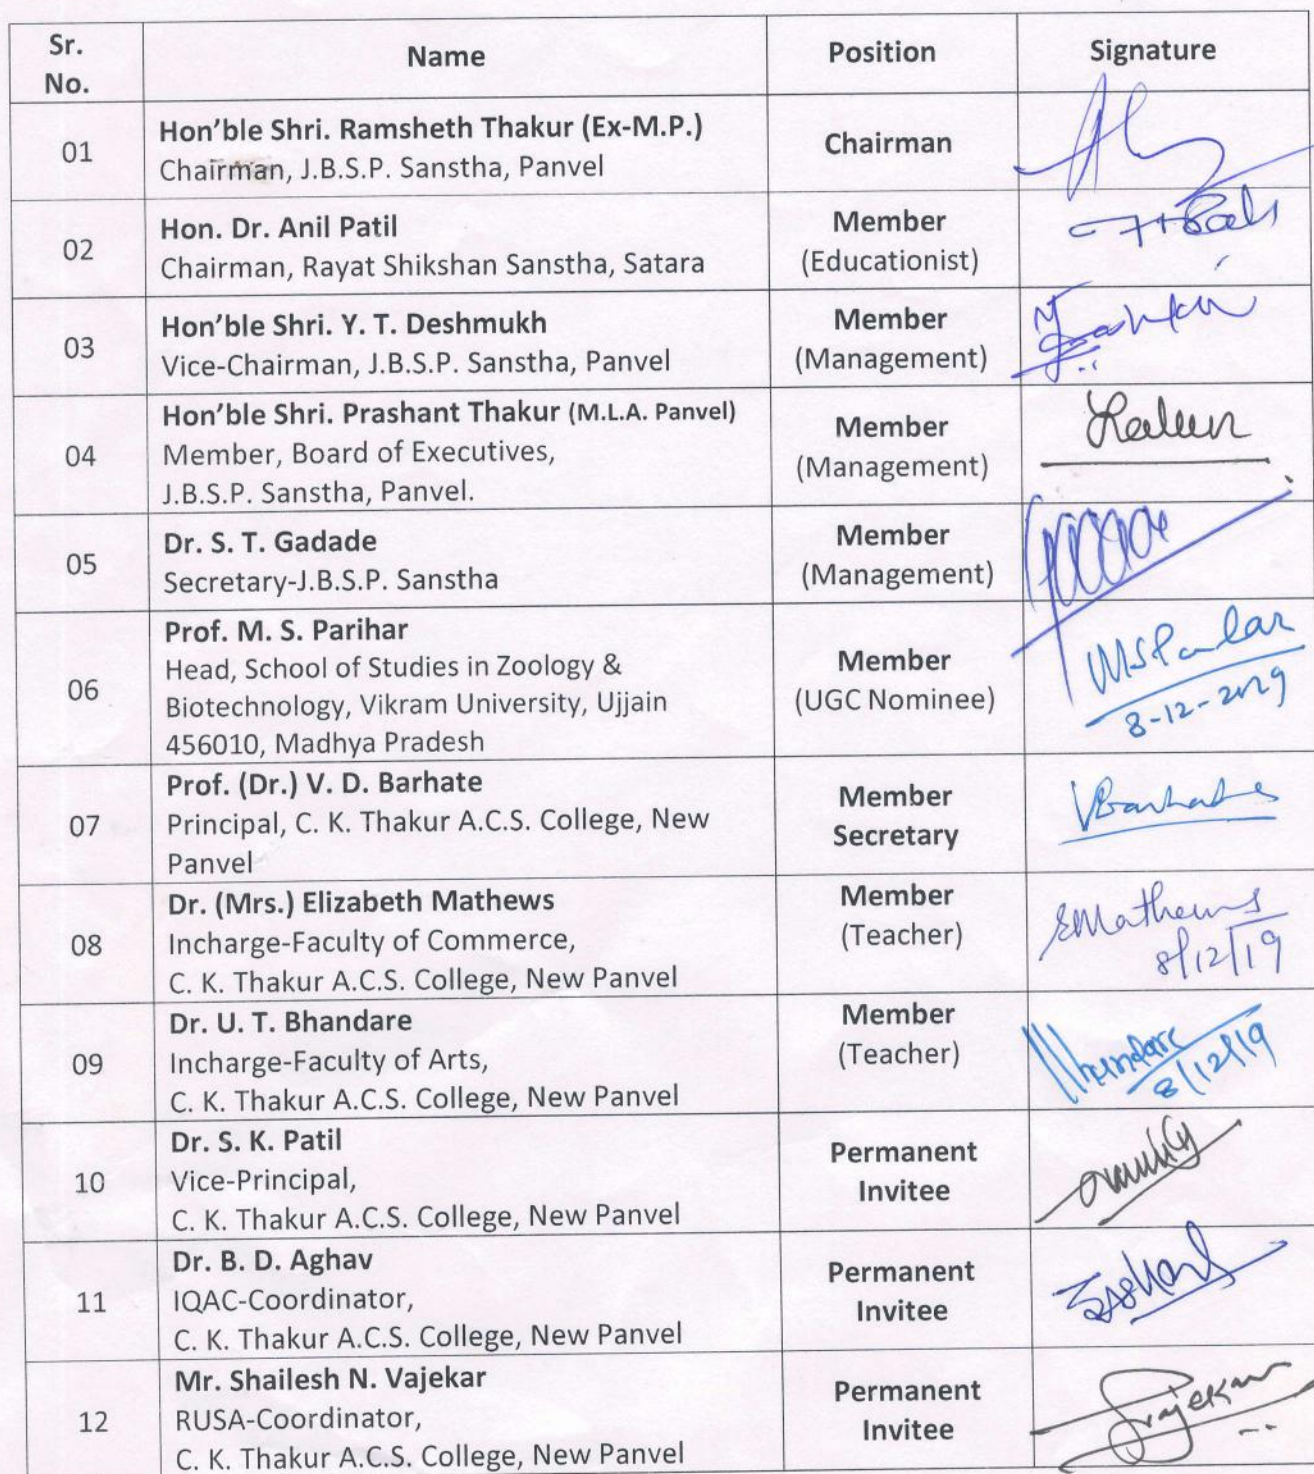 Sr.
No.
Name
Position
Signature
01
Hon'ble Shri. Ramsheth Thakur (Ex-M.P.)
Chairman, J.B.S.P. Sanstha, Panvel
Chairman
02
Hon. Dr. Anil Patil
Chairman, Rayat Shikshan Sanstha, Satara
Member
(Educationist)
03
Hon'ble Shri. Y. T. Deshmukh
Vice-Chairman, J.B.S.P. Sanstha, Panvel
Member
(Management)
04
Hon'ble Shri. Prashant Thakur (M.L.A. Panvel)
Member, Board of Executives,
J.B.S.P. Sanstha, Panvel.
Member
(Management)
05
Dr. S. T. Gadade
Secretary-J.B.S.P. Sanstha
Member
(Management)
06
Prof. M. S. Parihar
Head, School of Studies in Zoology &
Biotechnology, Vikram University, Ujjain
456010, Madhya Pradesh
Member
(UGC Nominee)
8-12-2019
07
Prof. (Dr.) V. D. Barhate
Principal, C. K. Thakur A.C.S. College, New
Panvel
Member
Secretary
VBarhate
08
Dr. (Mrs.) Elizabeth Mathews
Incharge-Faculty of Commerce,
C. K. Thakur A.C.S. College, New Panvel
Member
(Teacher)
EMathews
8/12/19
09
Dr. U. T. Bhandare
Incharge-Faculty of Arts,
C. K. Thakur A.C.S. College, New Panvel
Member
(Teacher)
8/12/19
10
Dr. S. K. Patil
Vice-Principal,
C. K. Thakur A.C.S. College, New Panvel
Permanent
Invitee
11
Dr. B. D. Aghav
IQAC-Coordinator,
C. K. Thakur A.C.S. College, New Panvel
Permanent
Invitee
12
Mr. Shailesh N. Vajekar
RUSA-Coordinator,
C. K. Thakur A.C.S. College, New Panvel
Permanent
Invitee